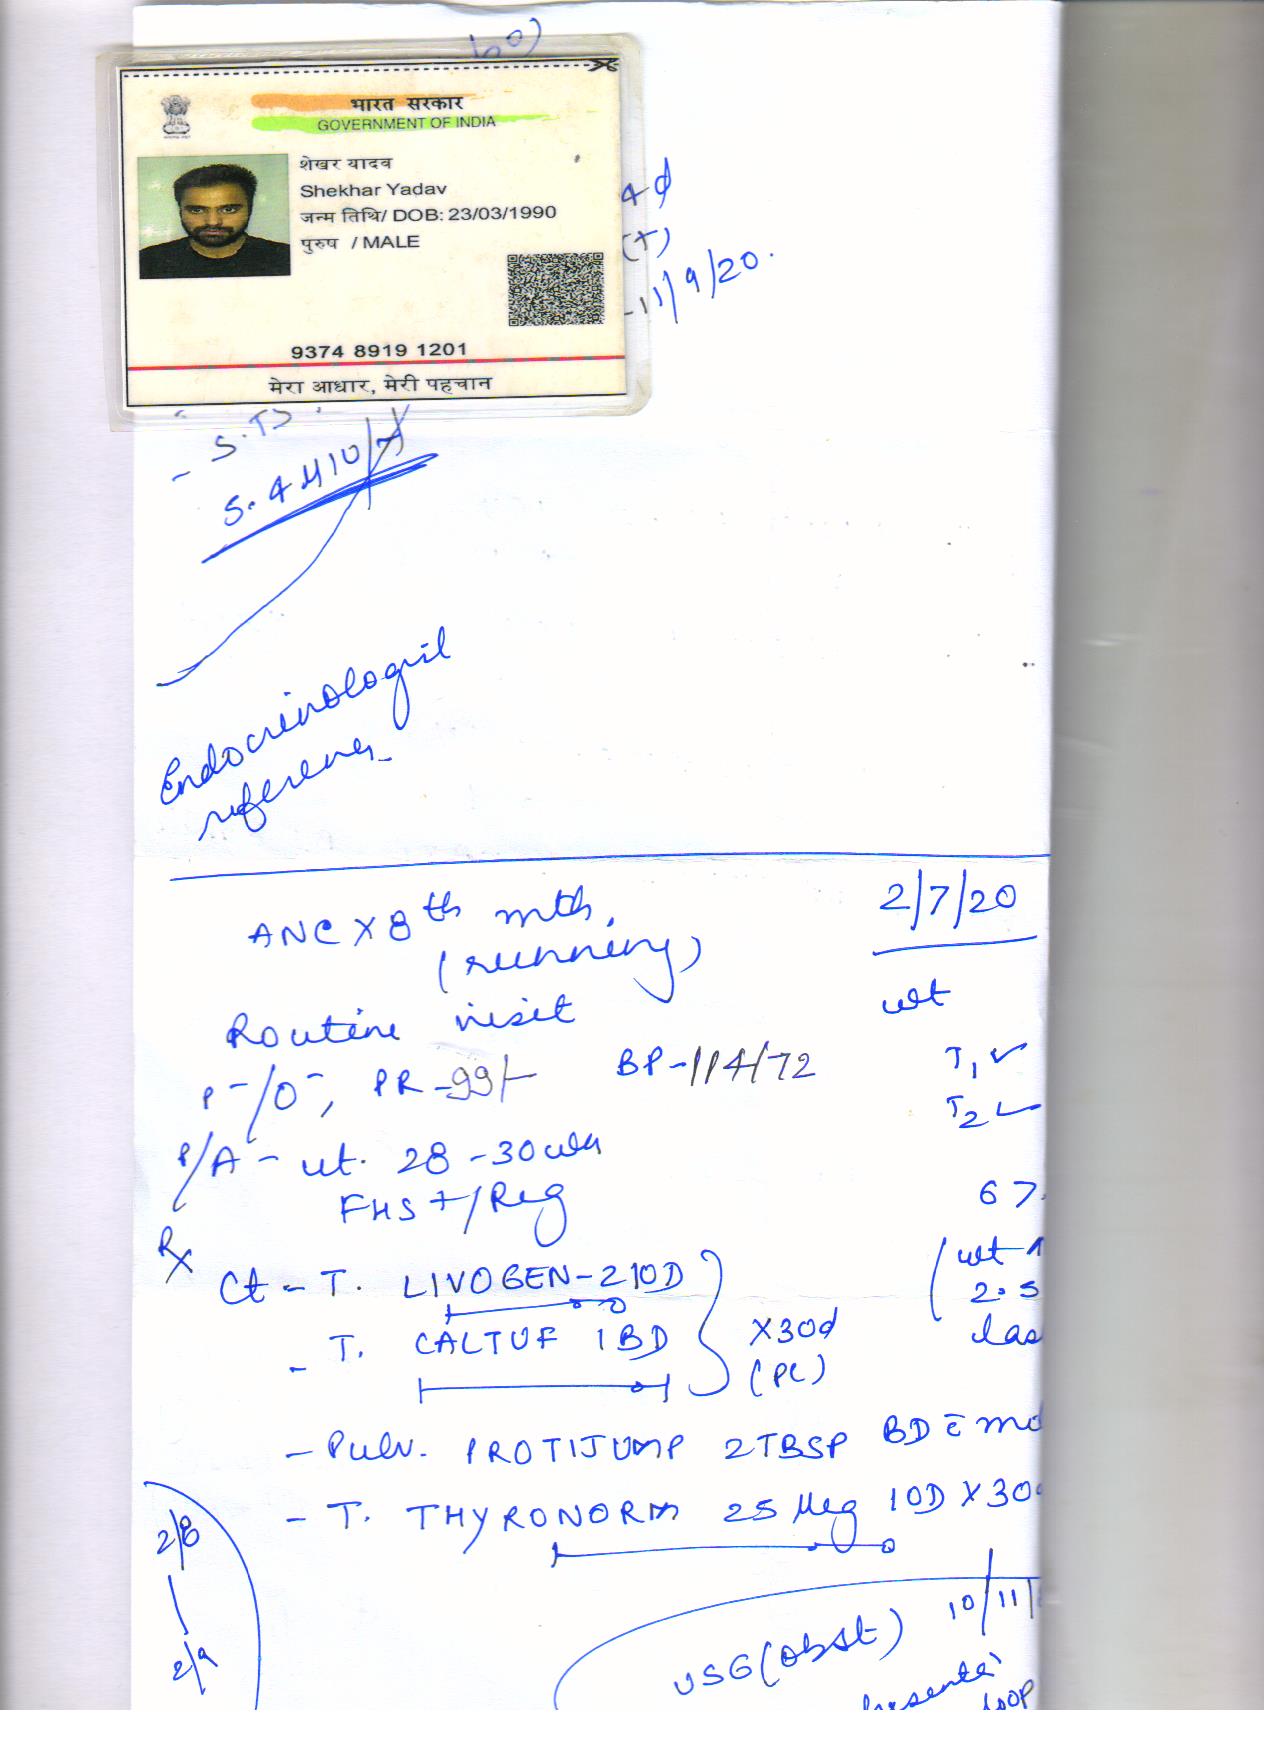 भारत सरकार
GOVERNMENT OF INDIA
शेखर यादव
Shekhar Yadav
जन्म तिथि/ DOB: 23/03/1990
पुरुष / MALE
9374 8919 1201
मेरा आधार, मेरी पहचान
4d
(+)
11/9/20.
Endocrinologist
reference
2/7/20
ANC X 8th mth.
(running)
wt
Routine visit
P-/O-, PR-99/- BP-114/72
T1 ✓
T2 ✓
P/A - ut. 28-30
FHS+/Reg
67
Rx
(wt ↑
2.5
Ct - T. LIVOGEN-Z 1OD
- T. CALTUF 1BD
X30d
(PC)
- Pulv. PROTIJUMP 2TBSP BD c̄
- T. THYRONORM 25 Mcg 1OD X 30
2/8
2/9
USG (obst)
10/11/